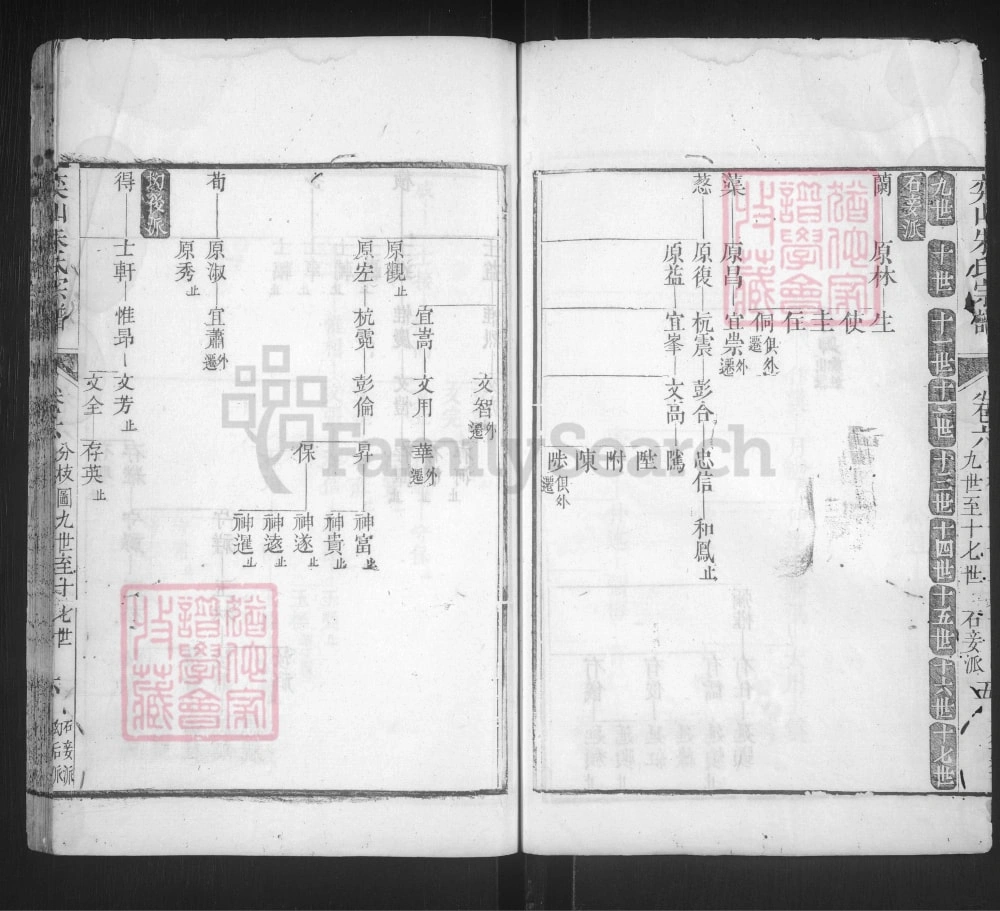 九世 十世 十一世 十二世 十三世 十四世 十五世 十六世 十七世
石妾派
蘭 原林 圭
使
圭
任
侗 俱外遷
葉 原昌 宜崇 外遷
葱 原復 杬震 彭合 忠信 和鳳 止
原益 宜峯 文高 鷹
陞
附
陳
陟 俱外遷
卷六 九世至十七世 石妾派 五
文智 外遷
宜嵩 文用 華 外遷
原觀 止
原宏 杬霓 彭倫 昇 神富 止
神貴 止
保 神遂 止
神遠 止
神暹 止
荀 原淑 宜蕭 外遷
原秀 止
得 士軒 惟昂 文芳 止
文全 存英 止
分枝圖 九世至十七世 六 石妾派
猶他家譜學會收藏
猶他家譜學會收藏
FamilySearch